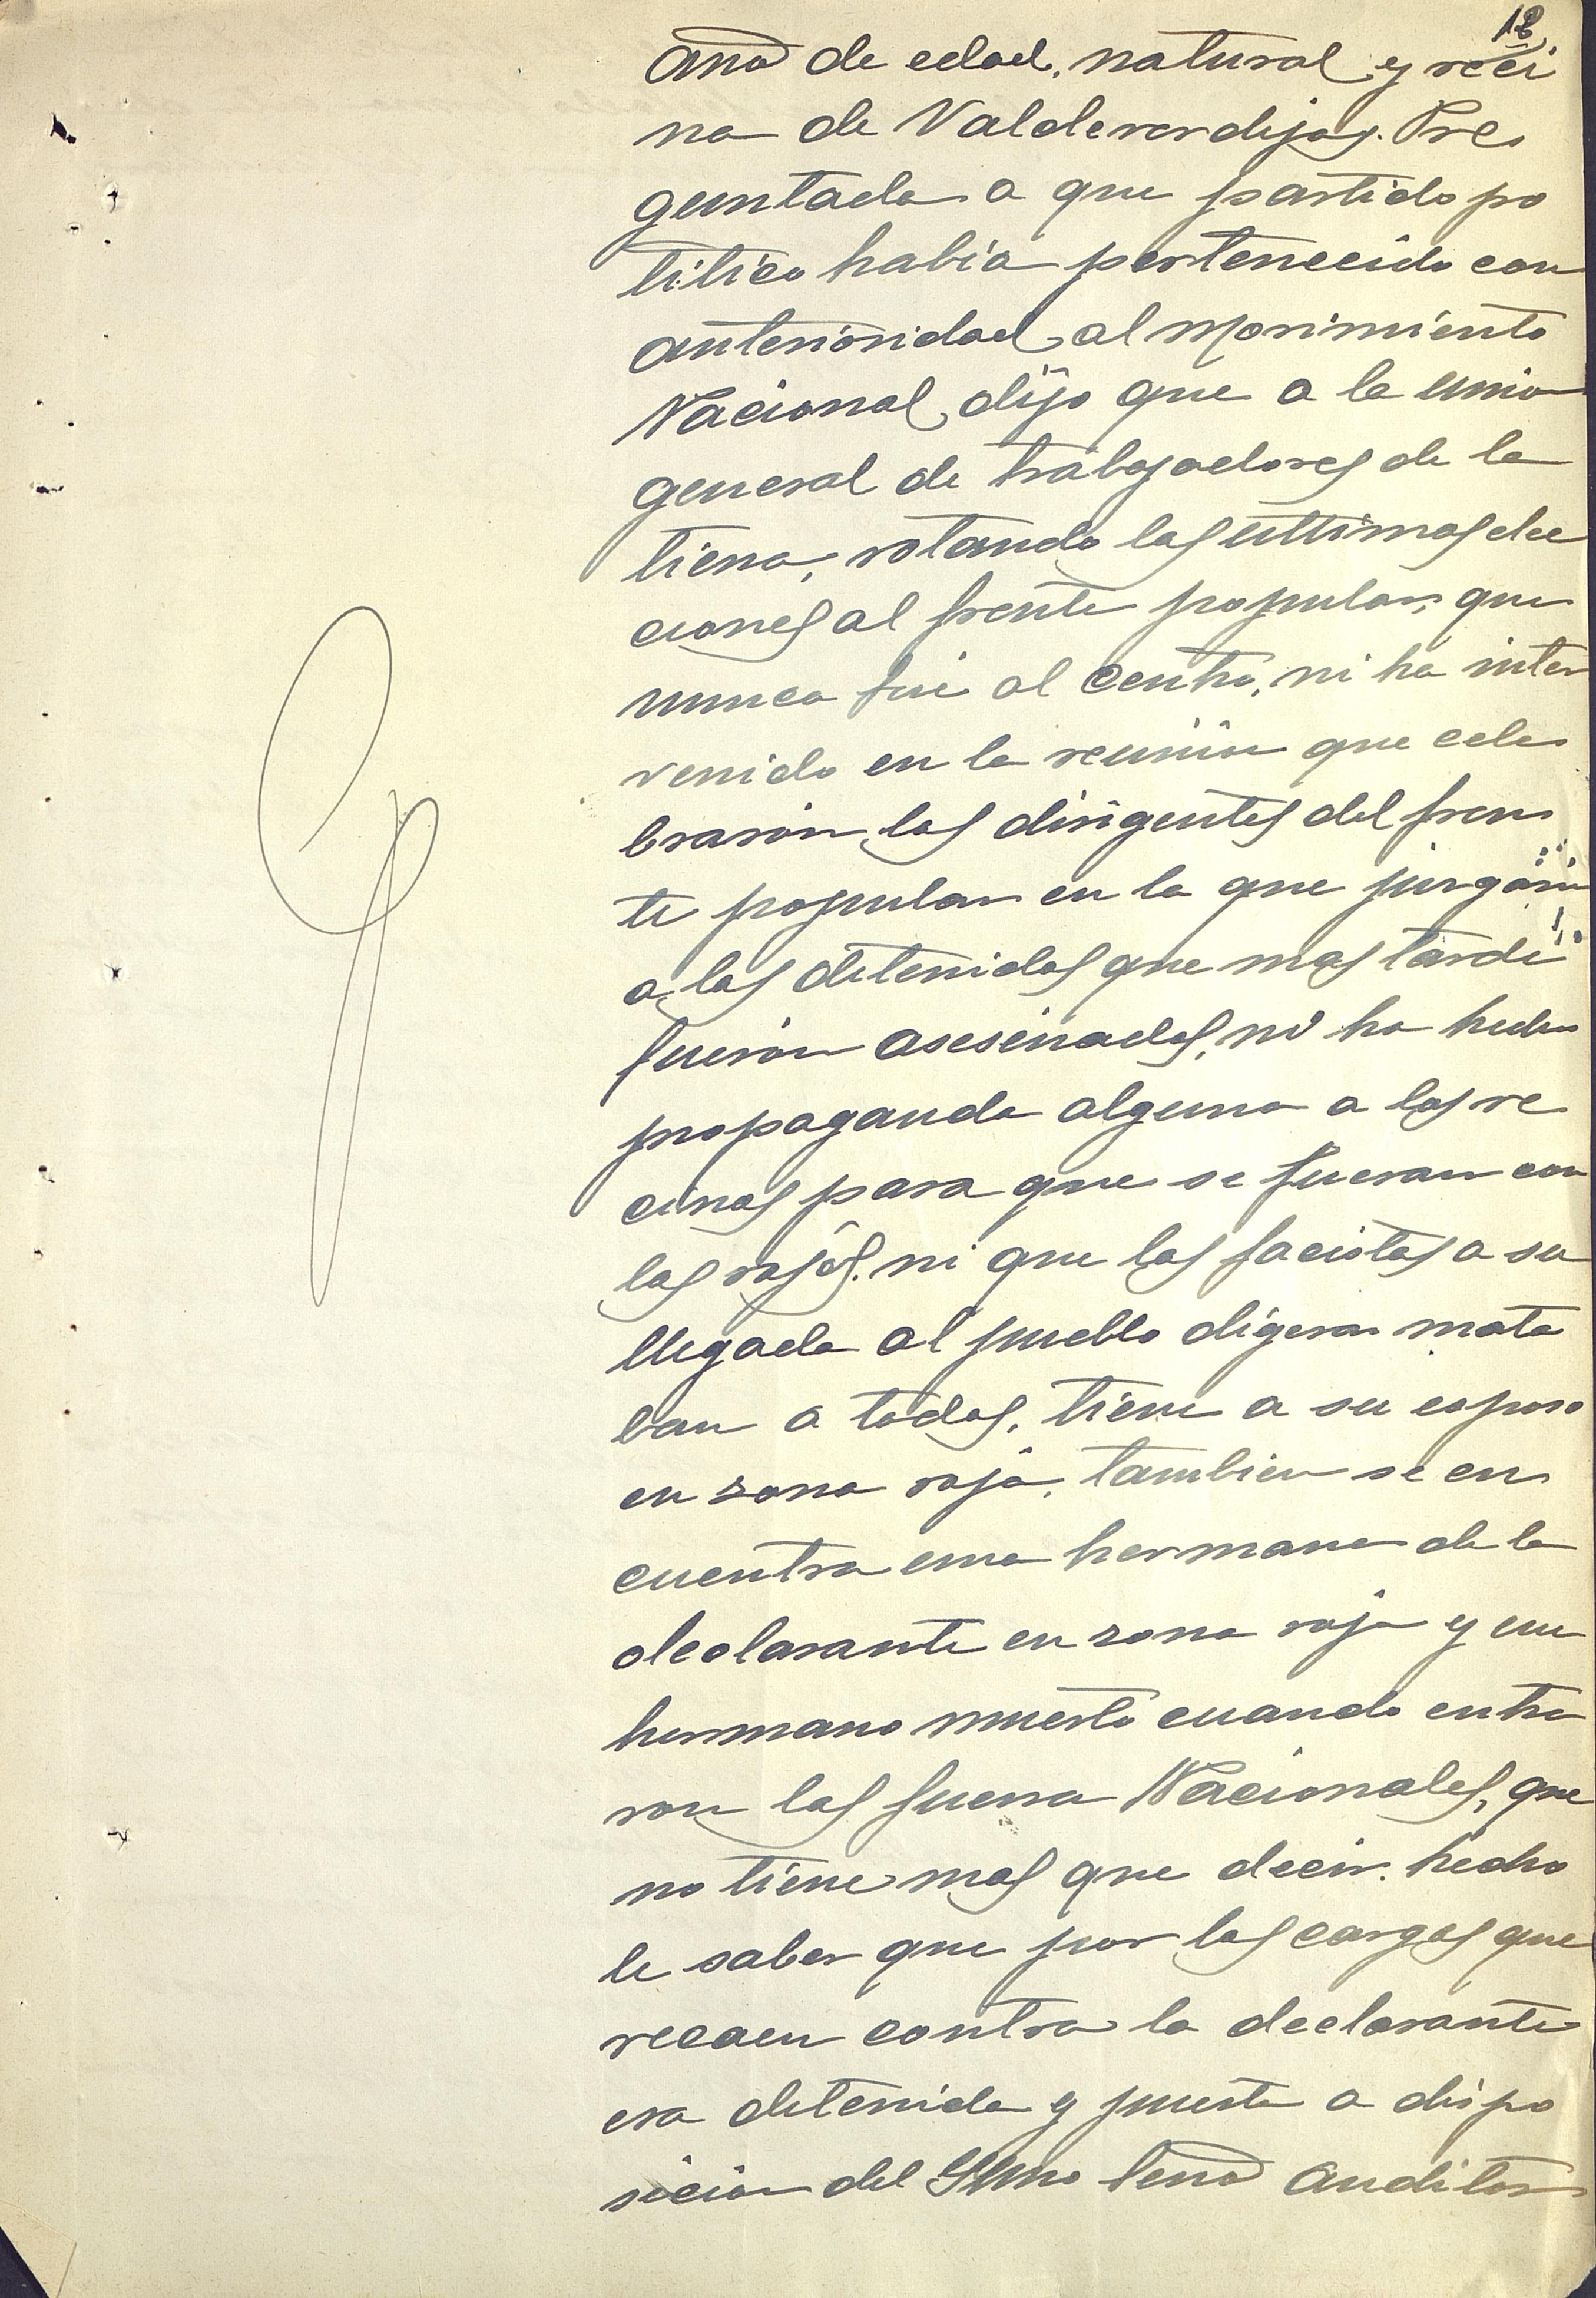 12
años de edad, natural y veci
na de Valdeverdeja. Pre
guntada a que partido po
litico habia pertenecido con
anterioridad al Movimiento
Nacional, dijo que a la union
general de trabajadores de la
tierra, votando las ultimas elec
ciones al frente popular, que
nunca fue al Centro, ni ha inter
venido en la reunion que cele
braron los dirigentes del fren
te popular en la que jusgaron
a los detenidos que mas tarde
fueron asesinados, ni ha hecho
propaganda alguna a los ve
cinos para que se fueran con
los rojos. ni que los facistas a su
llegada al pueblo digera mata
ban a todos, tiene a su esposo
en zona roja, tambien se en
cuentra una hermana de la
declarante en zona roja y un
hermano muerto cuando entra
ron las fuerza Nacionales, que
no tiene mas que decir. hecho
le saber que por los cargos que
recaen contra la declarante
era detenida y puesta a dispo
sicion del Ilmo Señor Auditor